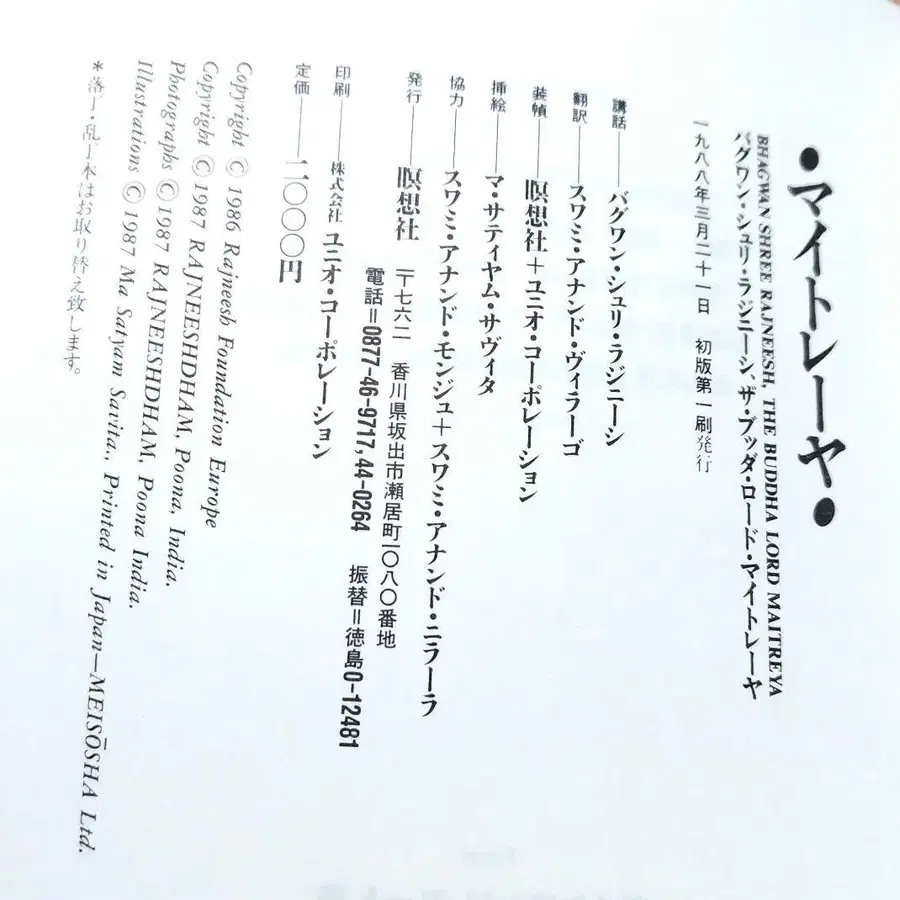 ・マイトレーヤ・
BHAGWAN SHREE RAJNEESH, THE BUDDHA LORD MAITREYA
バグワン・シュリ・ラジニーシ、ザ・ブッダ・ロード・マイトレーヤ
一九八八年三月二十一日 初版第一刷発行
講話――バグワン・シュリ・ラジニーシ
翻訳――スワミ・アナンド・ヴィラーゴ
装幀――瞑想社+ユニオ・コーポレーション
挿絵――マ・サティヤム・サヴィタ
協力――スワミ・アナンド・モンジュ+スワミ・アナンド・ニラーラ
発行――瞑想社 〒七六二 香川県坂出市瀬居町一〇八〇番地
電話=0877-46-9717,44-0264 振替=徳島0-12481
印刷――株式会社 ユニオ・コーポレーション
定価――二〇〇〇円
Copyright © 1986 Rajneesh Foundation Europe
Copyright © 1987 RAJNEESHDHAM, Poona, India.
Photographs © 1987 RAJNEESHDHAM, Poona India.
Illustrations © 1987 Ma Satyam Savita., Printed in Japan—MEISŌSHA Ltd.
*落丁・乱丁本はお取り替え致します。